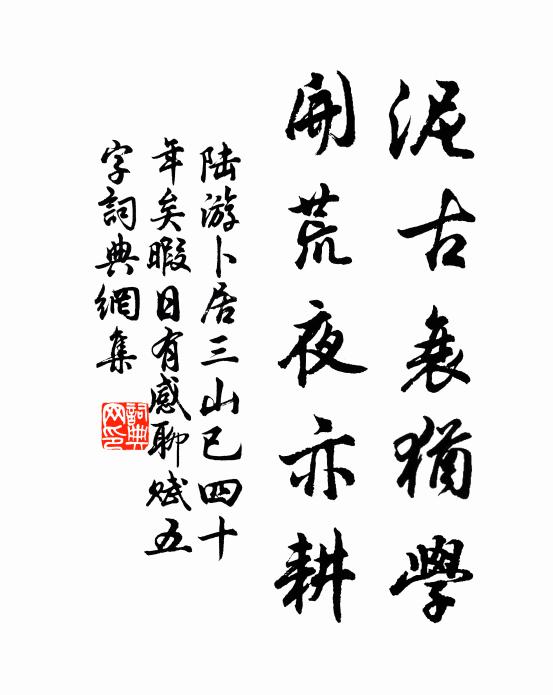 泥古衰猶學
開荒夜亦耕
陸游卜居三山已四十
年矣暇日有感聊賦五
字詞典網集
詞典
网印